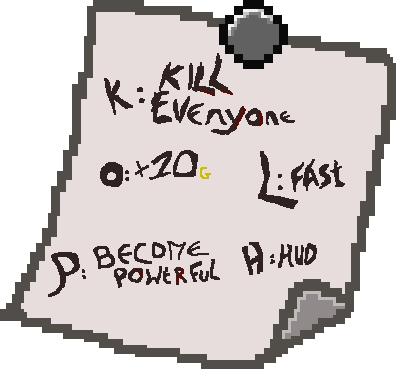 K: KILL
EVEryonE
O: +20G
L: FAST
P: BECOME
POWERFUL
H: HUD